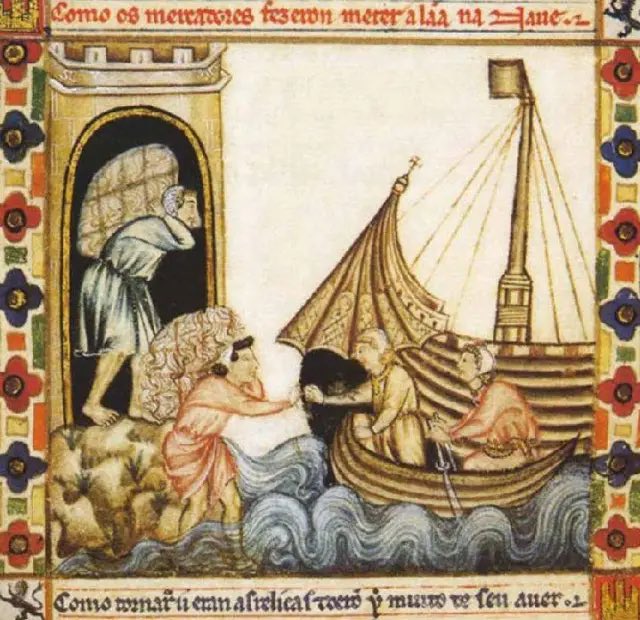 Como os mercadores fezeron meter a lãa na naue.
Como tornar̃ u eran as relicas τ derõ y muito de seu auer.